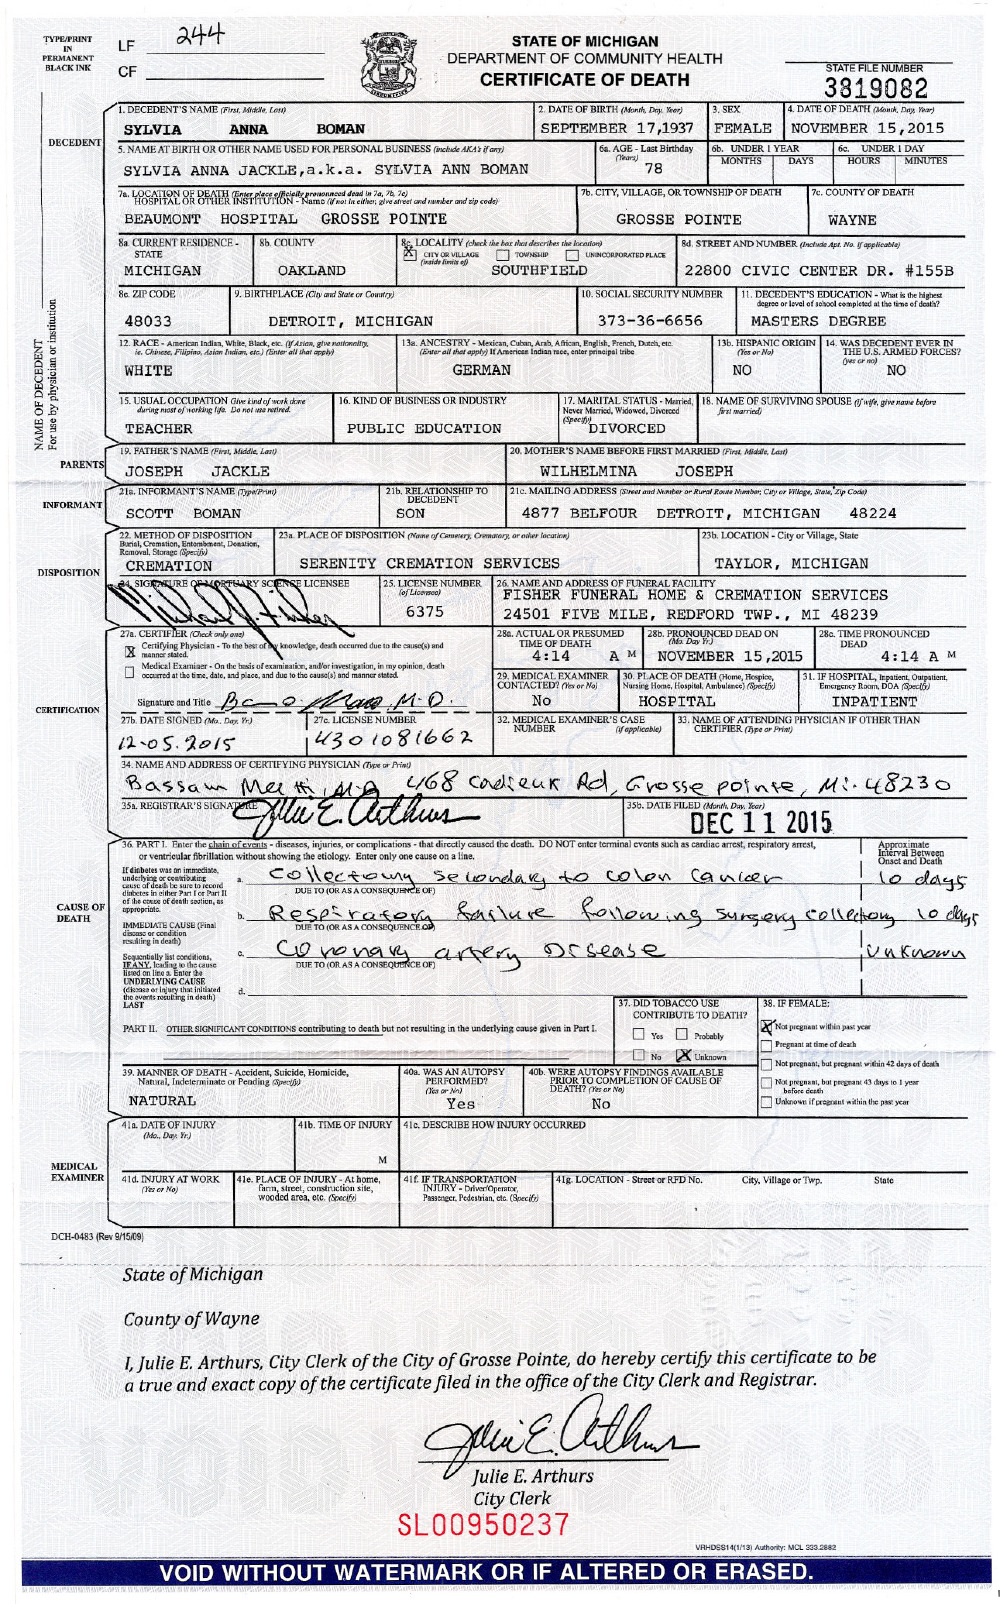 TYPE/PRINT
IN
PERMANENT
BLACK INK
LF 244
CF
STATE OF MICHIGAN
DEPARTMENT OF COMMUNITY HEALTH
CERTIFICATE OF DEATH
STATE FILE NUMBER
3819082
DECEDENT
NAME OF DECEDENT
For use by physician or institution
1. DECEDENT'S NAME (First, Middle, Last)
SYLVIA ANNA BOMAN
2. DATE OF BIRTH (Month, Day, Year)
SEPTEMBER 17,1937
3. SEX
FEMALE
4. DATE OF DEATH (Month, Day, Year)
NOVEMBER 15,2015
5. NAME AT BIRTH OR OTHER NAME USED FOR PERSONAL BUSINESS (Include AKA's if any)
SYLVIA ANNA JACKLE,a.k.a. SYLVIA ANN BOMAN
6a. AGE - Last Birthday
(Years)
78
6b. UNDER 1 YEAR
MONTHS DAYS
6c. UNDER 1 DAY
HOURS MINUTES
7a. LOCATION OF DEATH (Enter place officially pronounced dead in 7a, 7b, 7c)
HOSPITAL OR OTHER INSTITUTION - Name (if not in either, give street and number and zip code)
BEAUMONT HOSPITAL GROSSE POINTE
7b. CITY, VILLAGE, OR TOWNSHIP OF DEATH
GROSSE POINTE
7c. COUNTY OF DEATH
WAYNE
8a. CURRENT RESIDENCE -
STATE
MICHIGAN
8b. COUNTY
OAKLAND
8c. LOCALITY (check the box that describes the location)
X CITY OR VILLAGE
(inside limits of)
TOWNSHIP
UNINCORPORATED PLACE
SOUTHFIELD
8d. STREET AND NUMBER (Include Apt. No. if applicable)
22800 CIVIC CENTER DR. #155B
8e. ZIP CODE
48033
9. BIRTHPLACE (City and State or Country)
DETROIT, MICHIGAN
10. SOCIAL SECURITY NUMBER
373-36-6656
11. DECEDENT'S EDUCATION - What is the highest
degree or level of school completed at the time of death?
MASTERS DEGREE
12. RACE - American Indian, White, Black, etc. (if Asian, give nationality,
ie. Chinese, Filipino, Asian Indian, etc.) (Enter all that apply)
WHITE
13a. ANCESTRY - Mexican, Cuban, Arab, African, English, French, Dutch, etc.
(Enter all that apply) If American Indian race, enter principal tribe
GERMAN
13b. HISPANIC ORIGIN
(Yes or No)
NO
14. WAS DECEDENT EVER IN
THE U.S. ARMED FORCES?
(yes or no)
NO
15. USUAL OCCUPATION Give kind of work done
during most of working life. Do not use retired.
TEACHER
16. KIND OF BUSINESS OR INDUSTRY
PUBLIC EDUCATION
17. MARITAL STATUS - Married,
Never Married, Widowed, Divorced
(Specify)
DIVORCED
18. NAME OF SURVIVING SPOUSE (if wife, give name before
first married)
PARENTS
19. FATHER'S NAME (First, Middle, Last)
JOSEPH JACKLE
20. MOTHER'S NAME BEFORE FIRST MARRIED (First, Middle, Last)
WILHELMINA JOSEPH
INFORMANT
21a. INFORMANT'S NAME (Type/Print)
SCOTT BOMAN
21b. RELATIONSHIP TO
DECEDENT
SON
21c. MAILING ADDRESS (Street and Number or Rural Route Number, City or Village, State, Zip Code)
4877 BELFOUR DETROIT, MICHIGAN 48224
DISPOSITION
22. METHOD OF DISPOSITION
Burial, Cremation, Entombment, Donation,
Removal, Storage (Specify)
CREMATION
23a. PLACE OF DISPOSITION (Name of Cemetery, Crematory, or other location)
SERENITY CREMATION SERVICES
23b. LOCATION - City or Village, State
TAYLOR, MICHIGAN
24. SIGNATURE OF MORTUARY SCIENCE LICENSEE
25. LICENSE NUMBER
(of Licensee)
6375
26. NAME AND ADDRESS OF FUNERAL FACILITY
FISHER FUNERAL HOME & CREMATION SERVICES
24501 FIVE MILE, REDFORD TWP., MI 48239
CERTIFICATION
27a. CERTIFIER (Check only one)
X Certifying Physician - To the best of my knowledge, death occurred due to the cause(s) and
manner stated.
Medical Examiner - On the basis of examination, and/or investigation, in my opinion, death
occurred at the time, date, and place, and due to the cause(s) and manner stated.
Signature and Title M.D.
28a. ACTUAL OR PRESUMED
TIME OF DEATH
4:14 A M
28b. PRONOUNCED DEAD ON
(Mo. Day Yr.)
NOVEMBER 15,2015
28c. TIME PRONOUNCED
DEAD
4:14 A M
29. MEDICAL EXAMINER
CONTACTED? (Yes or No)
No
30. PLACE OF DEATH (Home, Hospice,
Nursing Home, Hospital, Ambulance) (Specify)
HOSPITAL
31. IF HOSPITAL, Inpatient, Outpatient,
Emergency Room, DOA (Specify)
INPATIENT
27b. DATE SIGNED (Mo., Day, Yr.)
12-05.2015
27c. LICENSE NUMBER
4301081662
32. MEDICAL EXAMINER'S CASE
NUMBER (if applicable)
33. NAME OF ATTENDING PHYSICIAN IF OTHER THAN
CERTIFIER (Type or Print)
34. NAME AND ADDRESS OF CERTIFYING PHYSICIAN (Type or Print)
Bassam M.D 468 Cadieux Rd, Grosse pointe, Mi. 48230
35a. REGISTRAR'S SIGNATURE
Julie E. Arthurs
35b. DATE FILED (Month, Day, Year)
DEC 11 2015
CAUSE OF
DEATH
36. PART I. Enter the chain of events - diseases, injuries, or complications - that directly caused the death. DO NOT enter terminal events such as cardiac arrest, respiratory arrest,
or ventricular fibrillation without showing the etiology. Enter only one cause on a line.
Approximate
Interval Between
Onset and Death
If diabetes was an immediate,
underlying or contributing
cause of death be sure to record
diabetes in either Part I or Part II
of the cause of death section, as
appropriate.
IMMEDIATE CAUSE (Final
disease or condition
resulting in death)
Sequentially list conditions,
IF ANY, leading to the cause
listed on line a. Enter the
UNDERLYING CAUSE
(disease or injury that initiated
the events resulting in death)
LAST
a. Collectomy secondary to colon cancer 10 days
DUE TO (OR AS A CONSEQUENCE OF)
b. Respiratory failure following surgery collectomy 10 days
DUE TO (OR AS A CONSEQUENCE OF)
c. Coronary artery Disease Unknown
DUE TO (OR AS A CONSEQUENCE OF)
d.
PART II. OTHER SIGNIFICANT CONDITIONS contributing to death but not resulting in the underlying cause given in Part I.
37. DID TOBACCO USE
CONTRIBUTE TO DEATH?
Yes Probably
No X Unknown
38. IF FEMALE:
X Not pregnant within past year
Pregnant at time of death
Not pregnant, but pregnant within 42 days of death
Not pregnant, but pregnant 43 days to 1 year
before death
Unknown if pregnant within the past year
39. MANNER OF DEATH - Accident, Suicide, Homicide,
Natural, Indeterminate or Pending (Specify)
NATURAL
40a. WAS AN AUTOPSY
PERFORMED?
(Yes or No)
Yes
40b. WERE AUTOPSY FINDINGS AVAILABLE
PRIOR TO COMPLETION OF CAUSE OF
DEATH? (Yes or No)
No
MEDICAL
EXAMINER
41a. DATE OF INJURY
(Mo., Day, Yr.)
41b. TIME OF INJURY
M
41c. DESCRIBE HOW INJURY OCCURRED
41d. INJURY AT WORK
(Yes or No)
41e. PLACE OF INJURY - At home,
farm, street, construction site,
wooded area, etc. (Specify)
41f. IF TRANSPORTATION
INJURY - Driver/Operator,
Passenger, Pedestrian, etc. (Specify)
41g. LOCATION - Street or RFD No. City, Village or Twp. State
DCH-0483 (Rev 9/15/09)
State of Michigan
County of Wayne
I, Julie E. Arthurs, City Clerk of the City of Grosse Pointe, do hereby certify this certificate to be
a true and exact copy of the certificate filed in the office of the City Clerk and Registrar.
Julie E. Arthurs
Julie E. Arthurs
City Clerk
SL00950237
VRHDSS14(1/13) Authority: MCL 333.2882
VOID WITHOUT WATERMARK OR IF ALTERED OR ERASED.